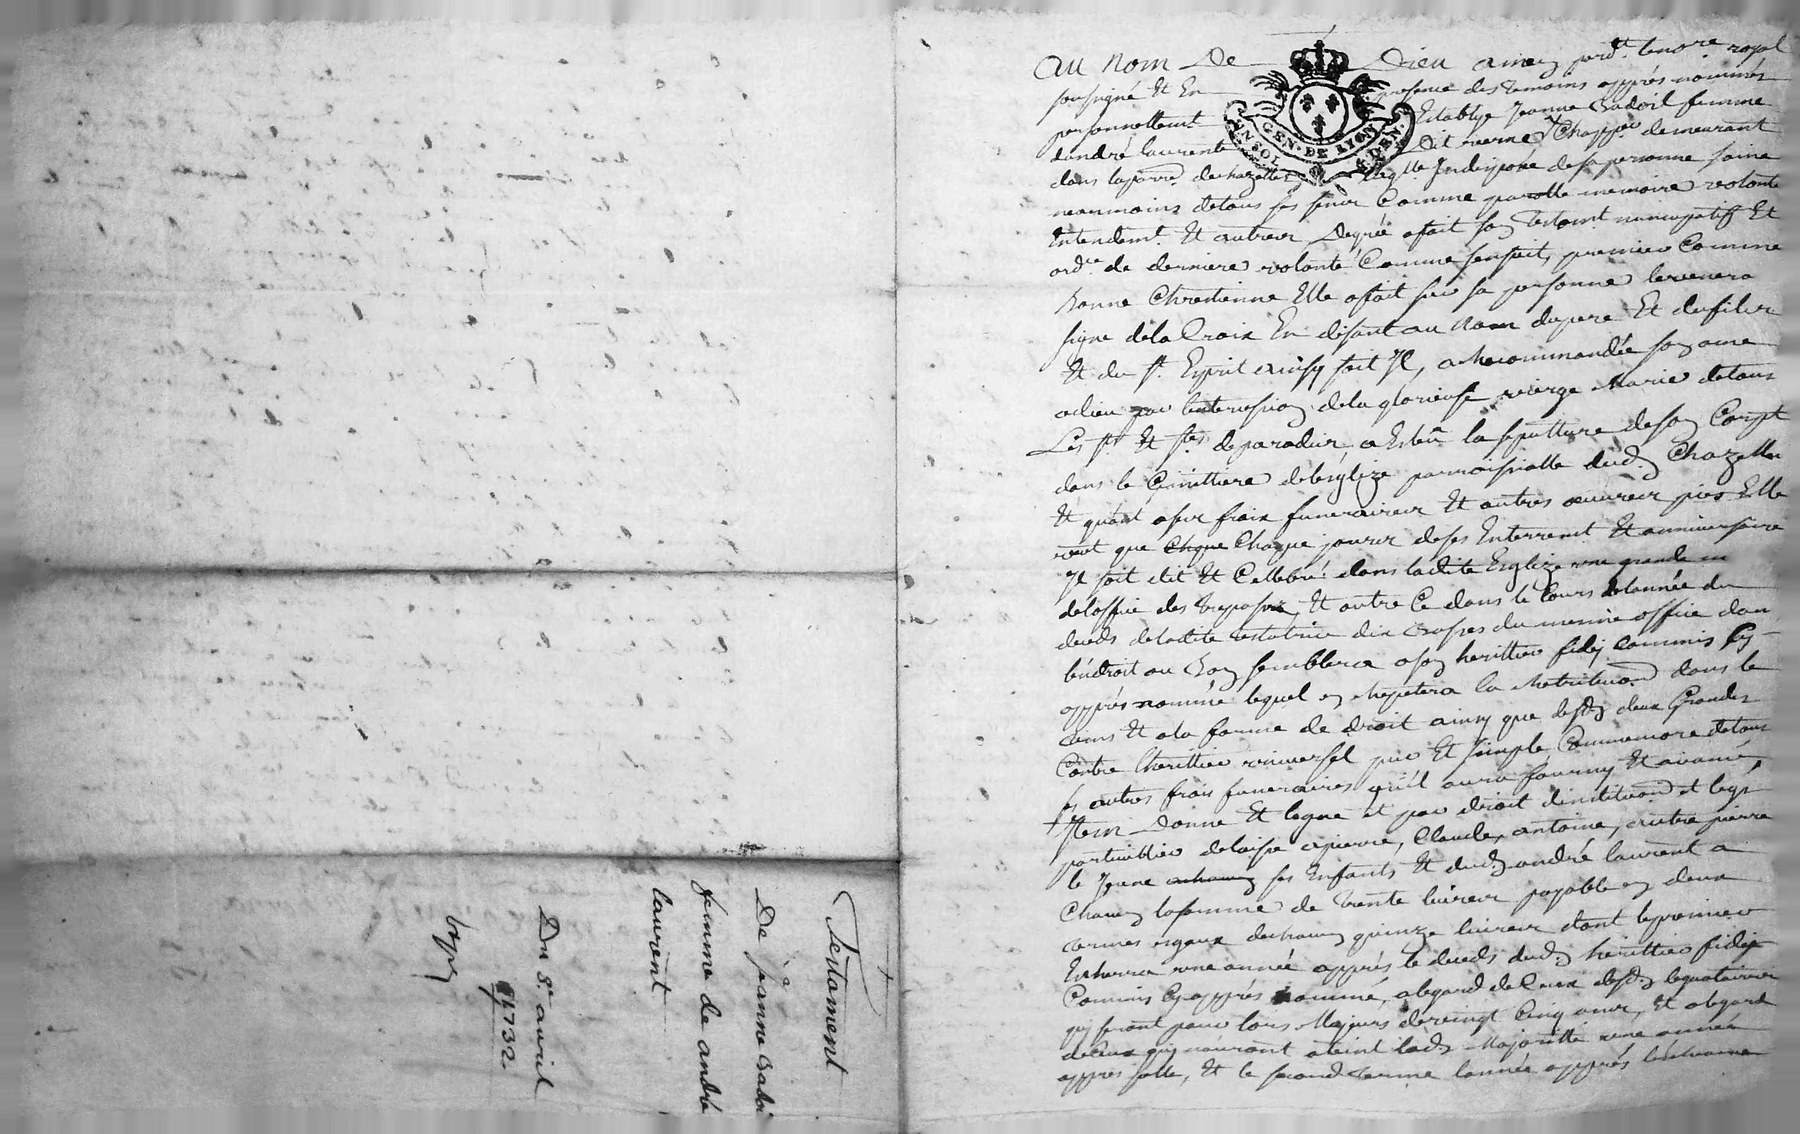 Testament
De jeanne Badoi
femme de andré
laurent
Du 8e avril
1732
GEN. DE LYON
AU Nom De Dieu amen pard.t le no.re royal
soussigné Et En presence des temoins apprés nommés
personnellement Establye Jeanne Badoil femme
dandré laurent Dit verne Chapp.er demeurant
dans la parr.e de chazelles laq.lle Indispose de sa personne saine
neanmoins de tous ses sens Comme parolle memoire volonté
Entendem.t Et autres Degrée a fait son Testam.t nuncupatif Et
ord.ce de derniere volonté Comme sensuit, premier Comme
Bonne Chrestienne Elle a fait sur sa personne le venera
signe de la Croix En disant au Nom du pere Et du fils
Et du St. Esprit ainsy soit Il, a Recommandée son ame
a dieu par lintersession de la glorieuse vierge Marie de tous
Les sts Et stes de paradis, a Esleu la sepulture de son Corps
dans le Cimittiere de lesglize parroissialle dud. Chazelles
Et quant a ses frais funeraires Et autres oeuvres pies Elle
veut que chque Chaque jours de ses Enterrem.t Et anniversaire
Il soit dit Et Cellebré dans ladite Esglize une grande m
de loffice des trepassés, Et outre Ce dans le Cours de lannée du
deceds de ladite testatrice dix basses du mesme office dan
lendroit ou bon semblera a son herittier fidei commis Cy
apprés nommé lequel en Repetera la Retribution dans le
tems Et a la forme de droit ainsy que desd. deux Grandes
Contre lherittier universel pur Et simple Comme encore de tous
ses autres frais funeraires quil aura fourny Et avancé,
Item Donne Et legue et par droit dinstitution et legs
particullier delaisse a pierre, Claude, antoine, autre pierre
le Jeune a chacun ses Enfants Et dud. andré laurent a
Chacun la somme de trente livres payable en deux
termes egaux de chacun quinze livres dont le premier
Escherra une année apprés le deceds dud. herittier fidei
Commis Cy apprés nommé, a legard de Ceux desd. legataires
qui seront pour lors Majeurs de vingt Cinq ans, Et a legard
de Ceux qui nauront ateint lad. Majorité une année
apprés Icelle, Et le second terme lannée apprés lescheance